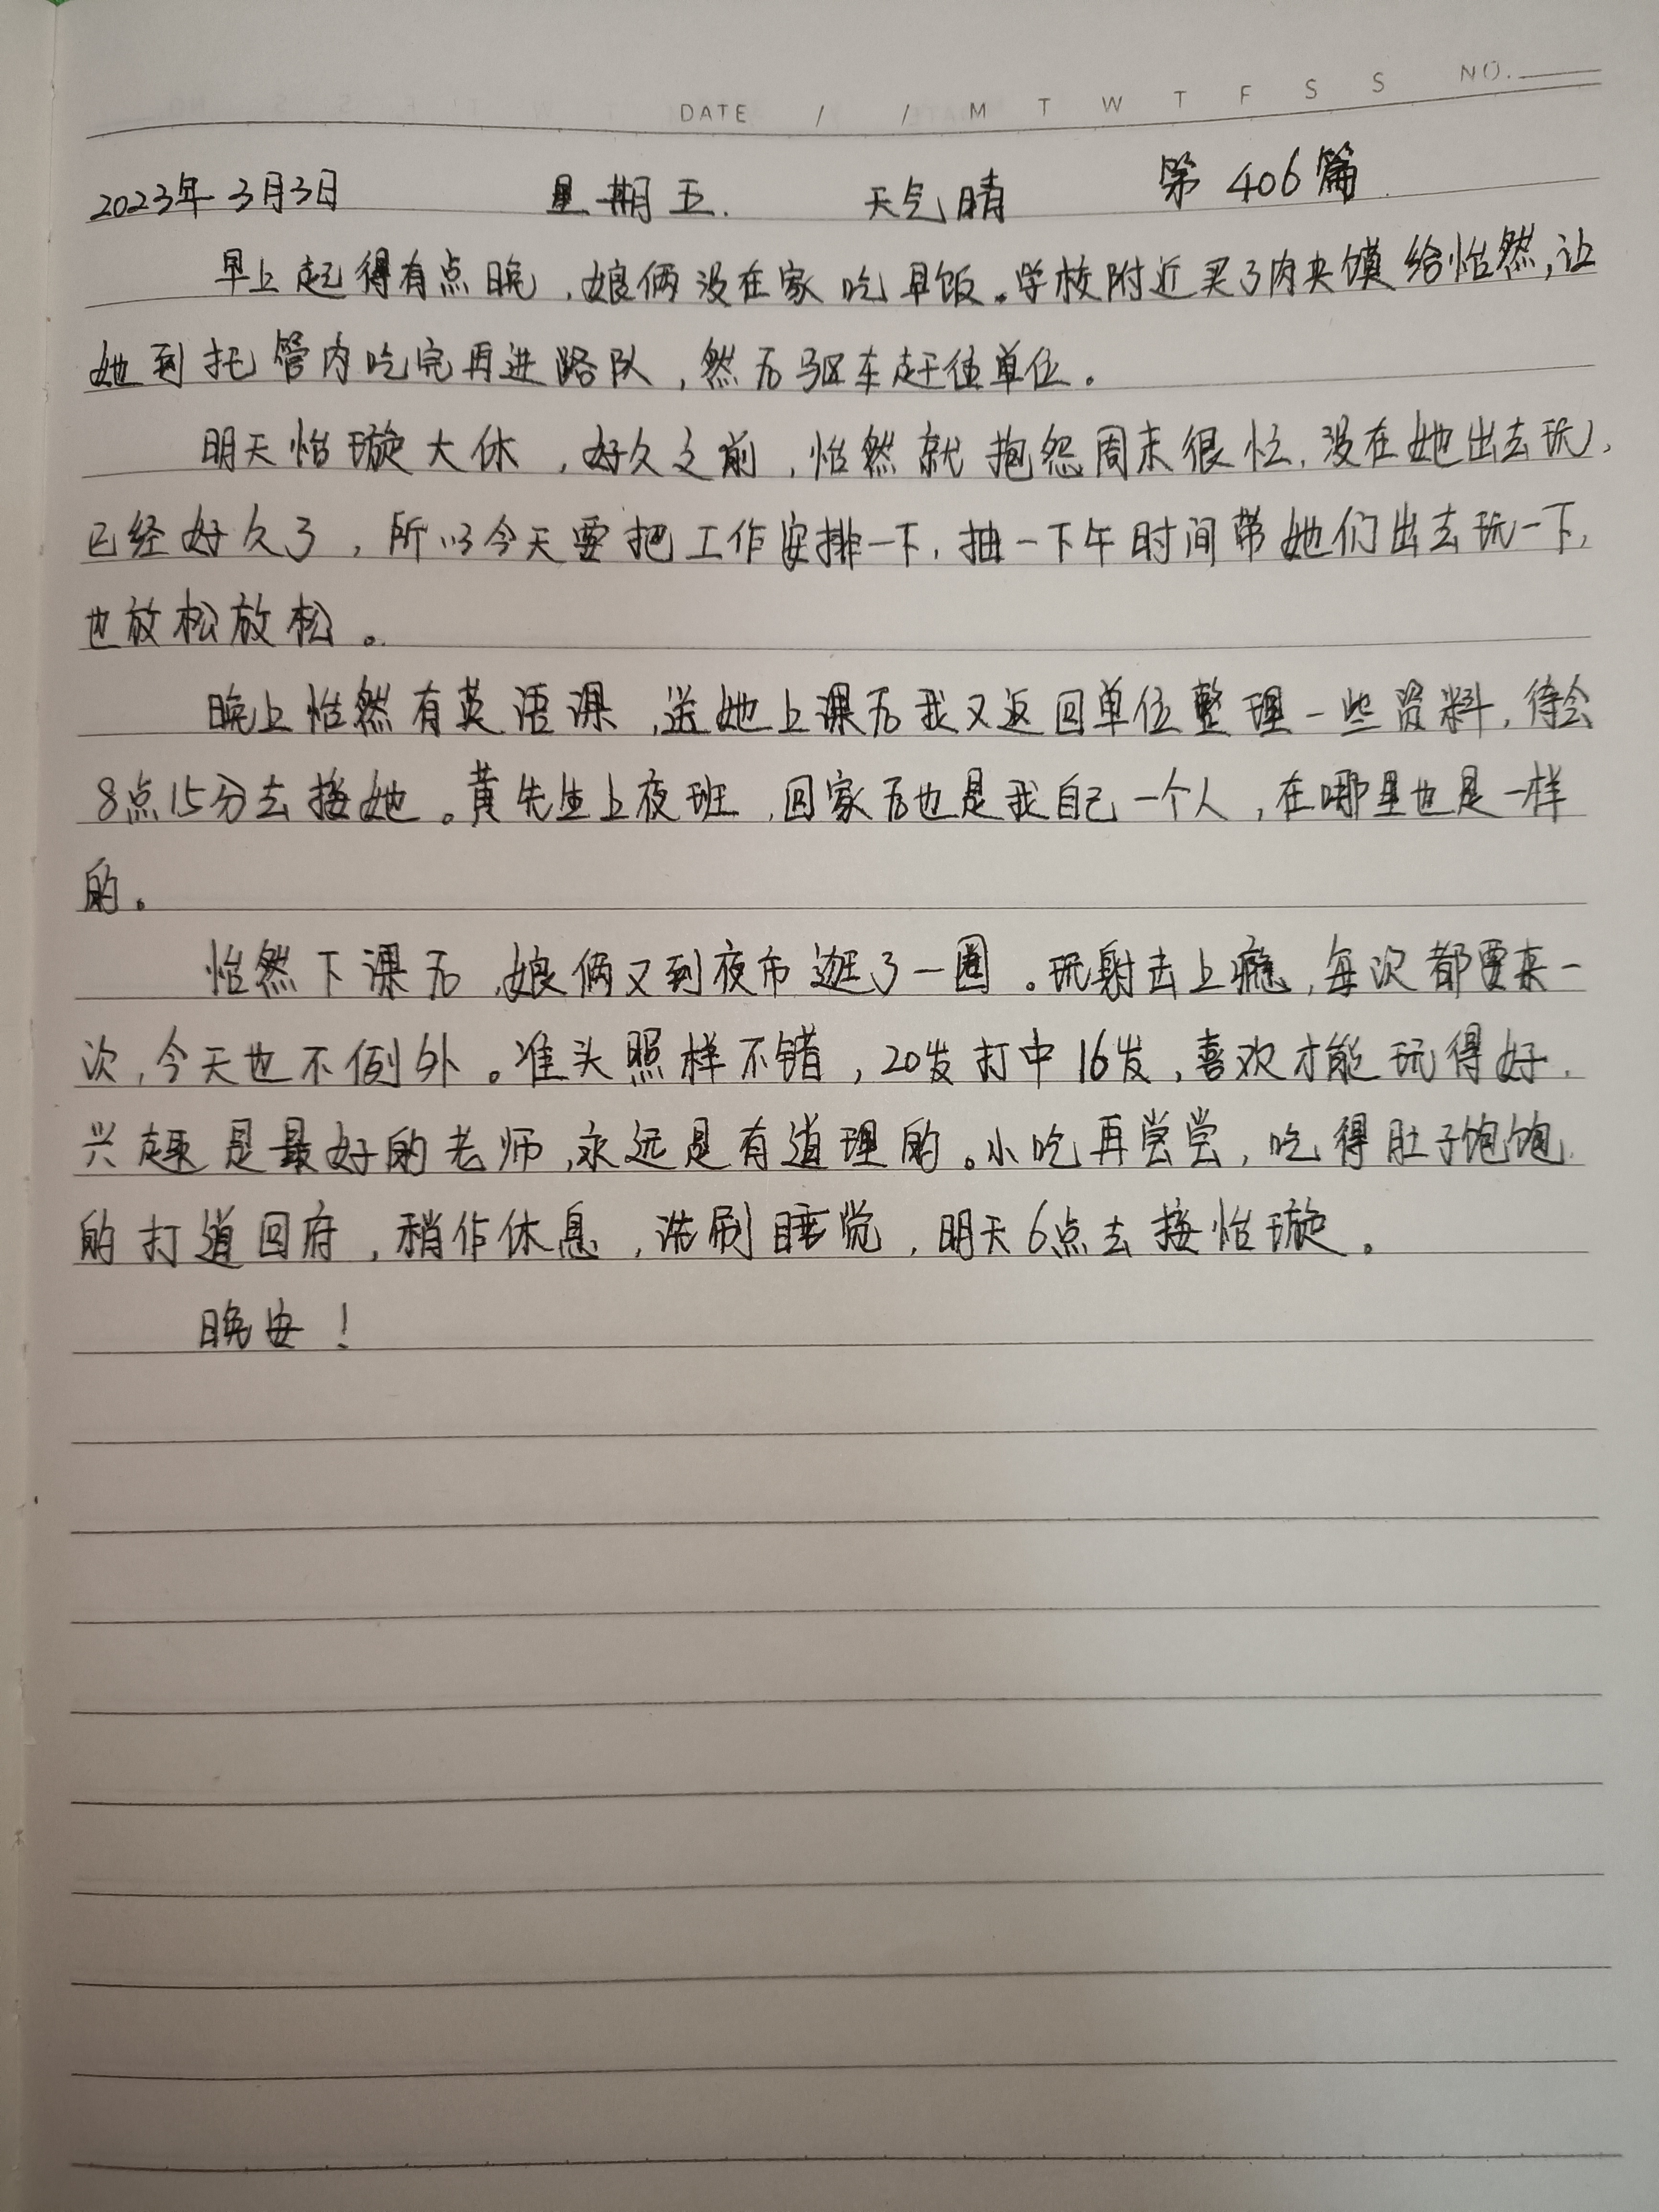 DATE / / M T W T F S S NO.
2023年3月3日 星期五. 天气晴 第406篇
早上起得有点晚,娘俩没在家吃早饭。学校附近买了肉夹馍给怡然,让
她到托管内吃完再进路队,然后驱车赶往单位。
明天怡璇大休,好久之前,怡然就抱怨周末很忙,没在她出去玩,
已经好久了,所以今天要把工作安排一下,抽一下午时间带她们出去玩一下,
也放松放松。
晚上怡然有英语课,送她上课后我又返回单位整理一些资料,待会
8点15分去接她。黄先生上夜班,回家后也是我自己一个人,在哪里也是一样
的。
怡然下课后,娘俩又到夜市逛了一圈。玩射击上瘾,每次都要来一
次,今天也不例外。准头照样不错,20发打中16发,喜欢才能玩得好.
兴趣是最好的老师,永远是有道理的。小吃再尝尝,吃得肚子饱饱
的打道回府,稍作休息,洗刷睡觉,明天6点去接怡璇。
晚安!